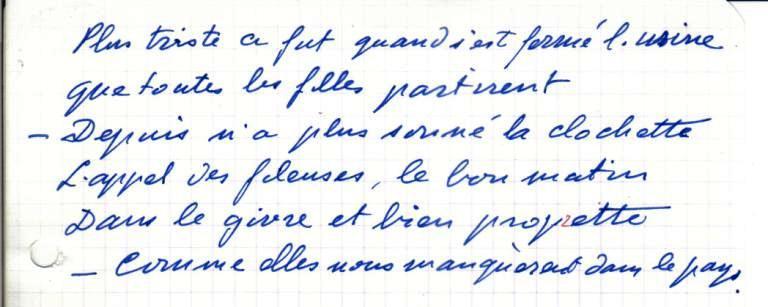 Plus triste ce fut quand s'est fermé l'usine
que toutes les filles partirent
– Depuis n'a plus sonné la clochette
L'appel des fileuses, le bon matin
Dans le givre et bien proprette
– Comme elles nous manquèrent dans le pays.